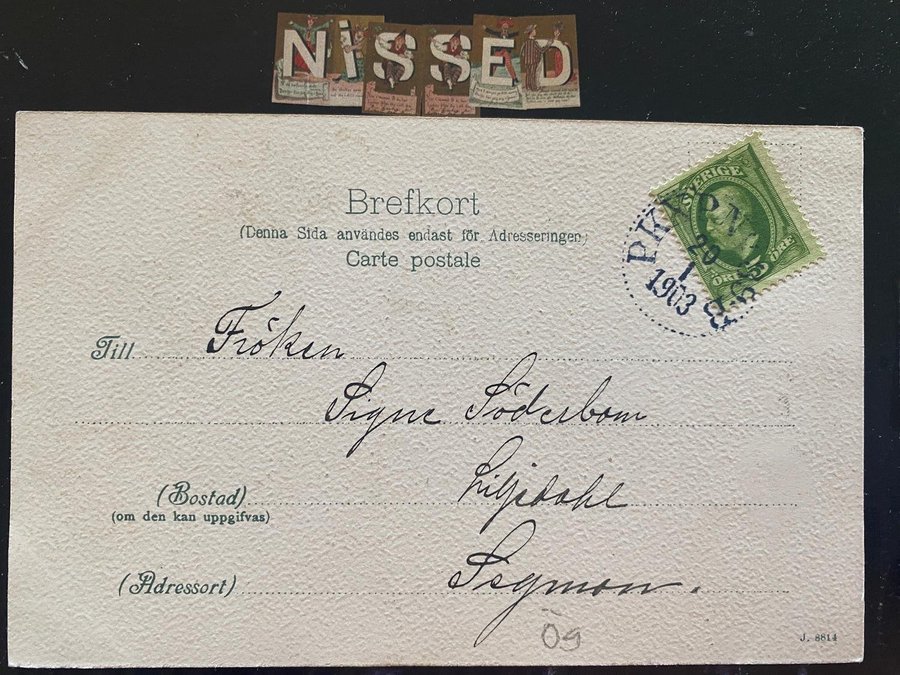 NiSSED
Brefkort
(Denna Sida användes endast för Adresseringen)
Carte postale
SVERIGE
ÖRE
PKXP N
20
1
1903
Till Fröken
Signe Söderbom
(Bostad) Liljedahl
(om den kan uppgifvas)
(Adressort) Segmon.
Ög
J. 8814